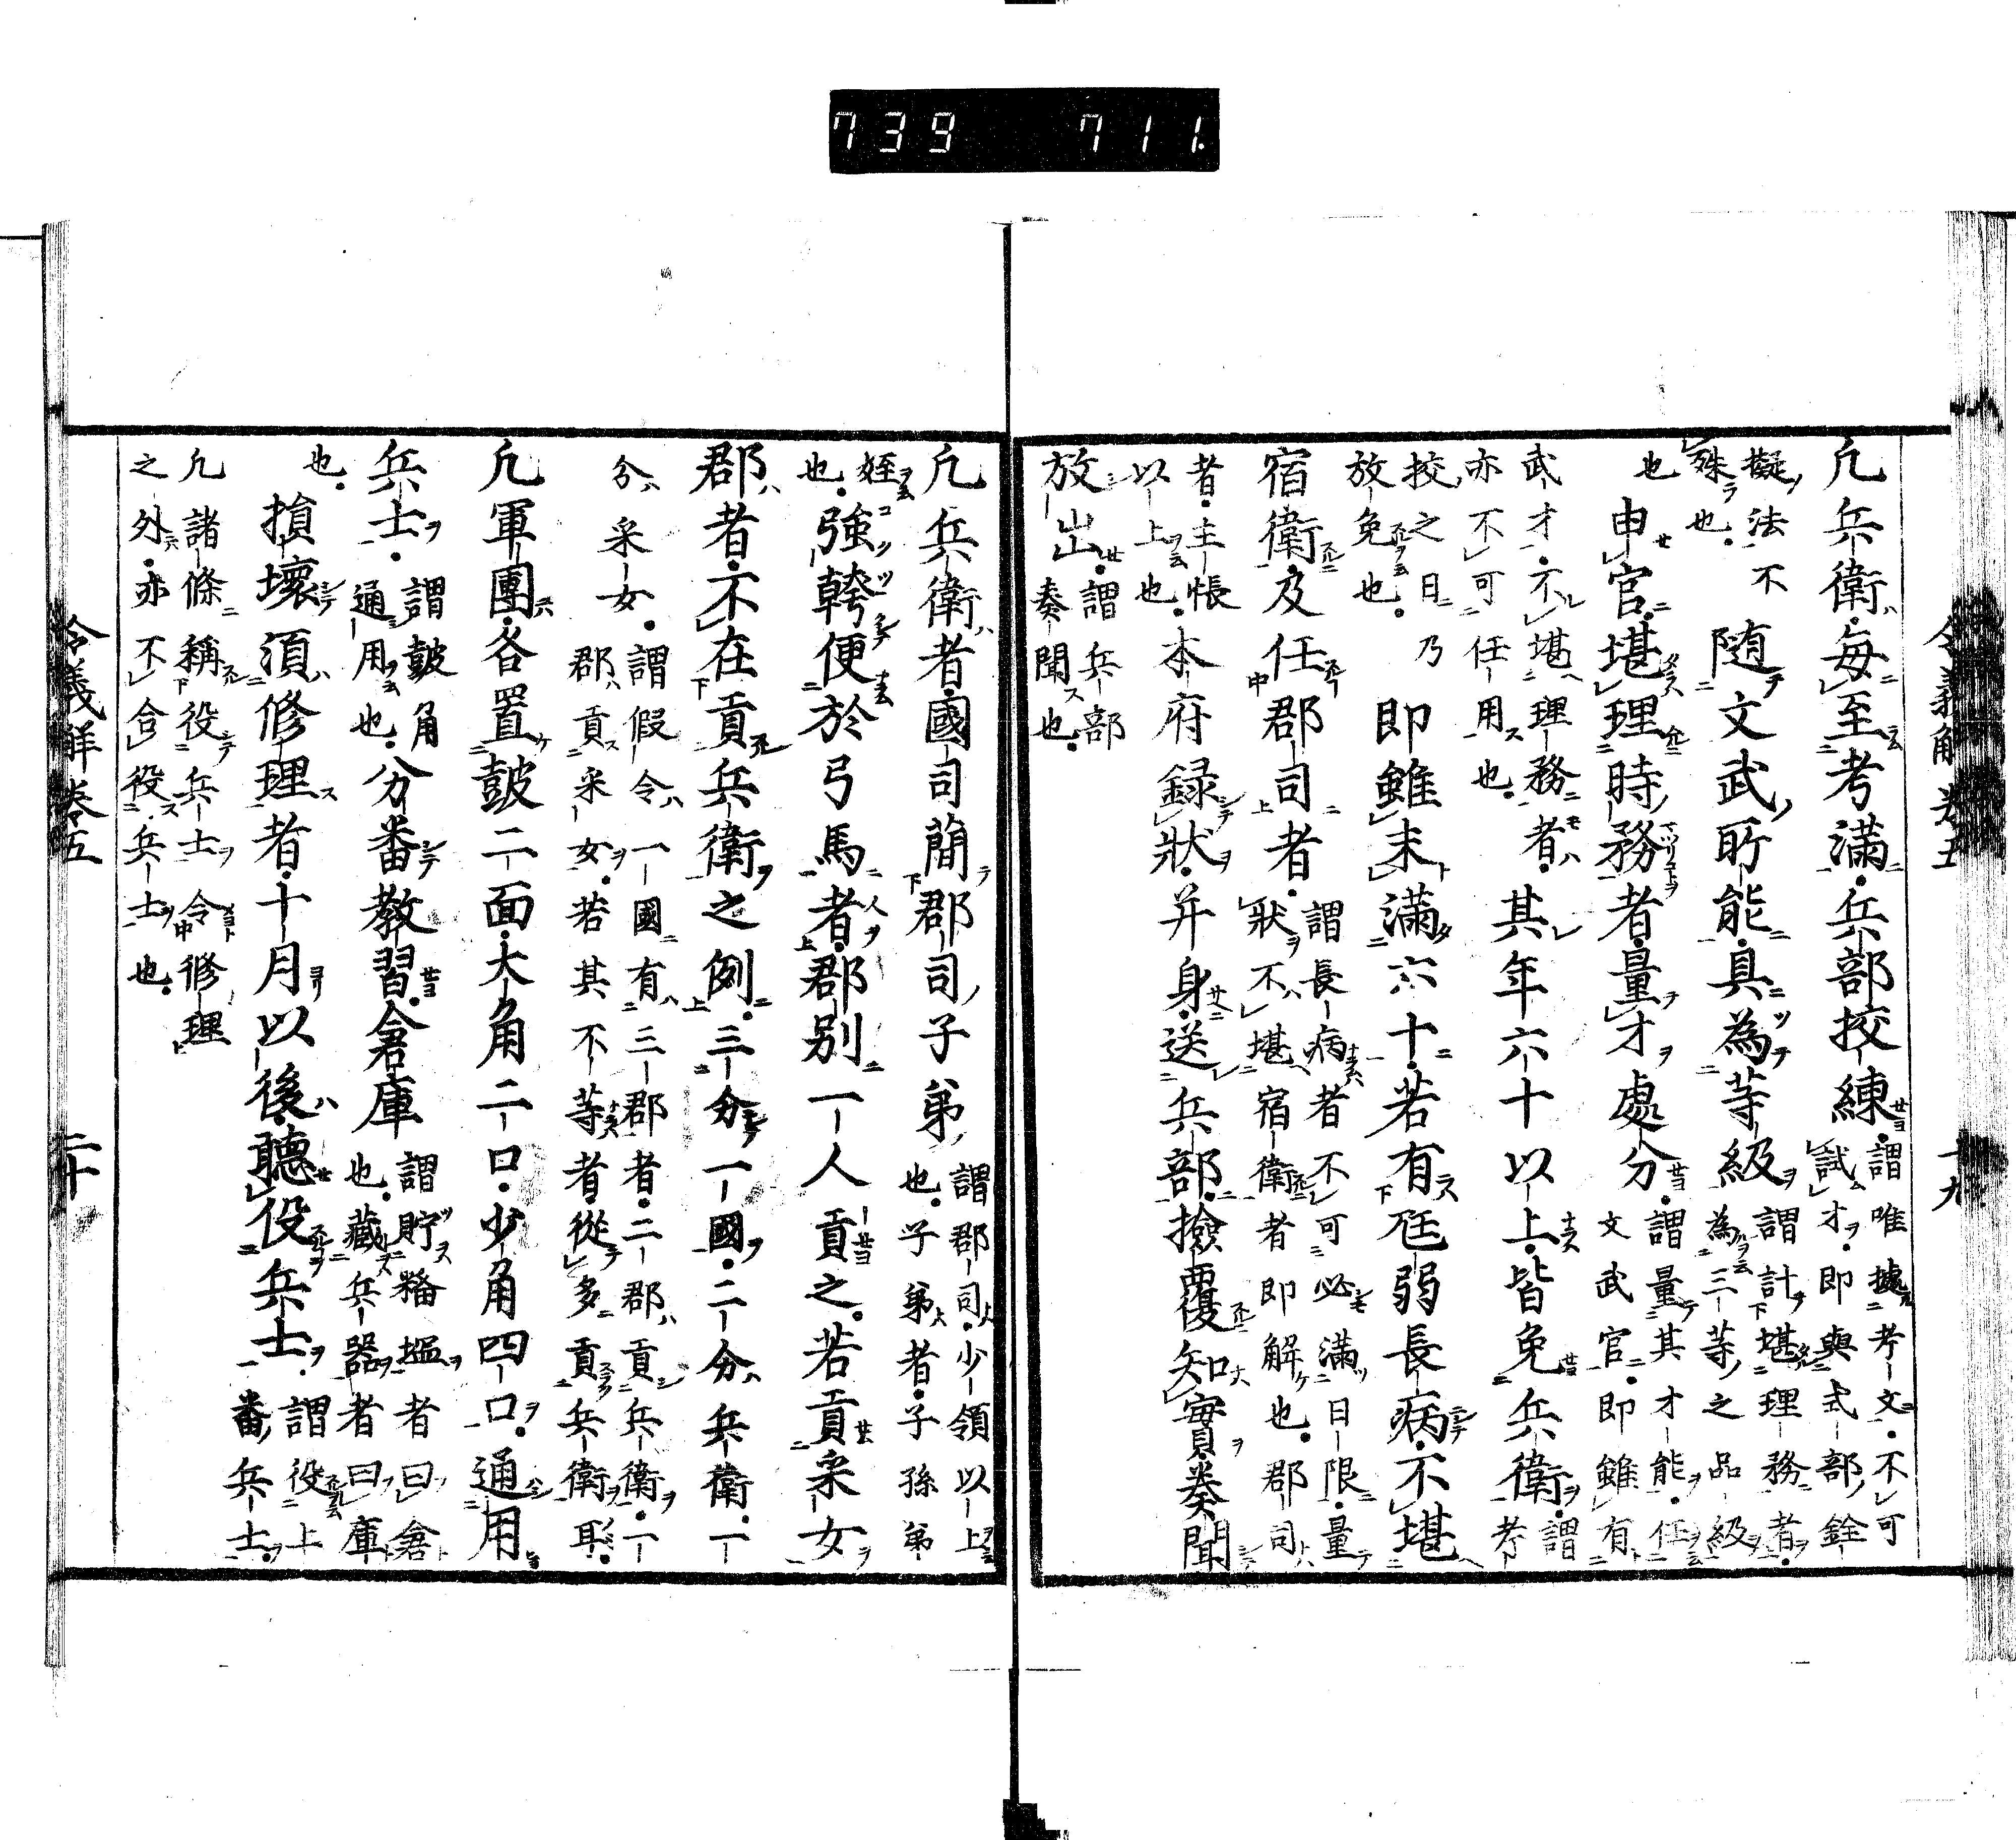 739 711.
令義解卷五 十九
凢兵衛毎至考滿兵部挍練謂唯據考文不可試才即與式部銓
擬法不殊也随文武所能具為等級謂計堪理務者為三等之品級
也申官堪理時務者量才處分謂量其才能任文武官即雖有
武才不堪理務者亦不可任用也其年六十以上皆免兵衛謂考
挍之日乃放免也即雖未滿六十若有尩弱長病不堪
宿衛及任郡司者謂長病者不可必滿日限量狀不堪宿衛者即解也郡司
者主帳以上也本府録狀并身送兵部撿覆知實奏聞
放出謂兵部奏聞也
凢兵衛者國司蕳郡司子弟謂郡司少領以上也子弟者子孫弟
姪也強幹便於弓馬者郡别一人貢之若貢采女
郡者不在貢兵衛之例三分一國二分兵衛一
分采女謂假令一國有三郡者二郡貢兵衛一郡貢采女若其不等者從多貢兵衛耳
凢軍團各置皷二面大角二口少角四口通用
兵士謂皷角通用也分番教習倉庫謂貯粮塩者曰倉也藏兵器者曰庫
也損壞須修理者十月以後聽役兵士謂役上番兵士
凢諸條稱役兵士令修理之外亦不合役兵士也
令義解卷五 二十